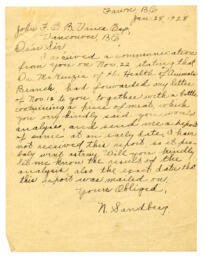 Fawn, B.C.
Jan. 28 1928
John F. C. B. Vance Esq,
Vancouver B.C.
Dear Sir
I received a communication
from you on Nov. 22 stating that
Dr McKenzie of the Health of Animals
Branch, had forwarded my letter
of Nov. 12 to you together with a bottle
containing a piece of meat, which
you only kindly said you would
analysis, and send me a report
of same at an early date. I have
not received this report, so it pro-
bably went astray. Will you kindly
let me know the result of the
analysis also the exact date that
this report was mailed on
Yours Obliged,
N. Sandberg